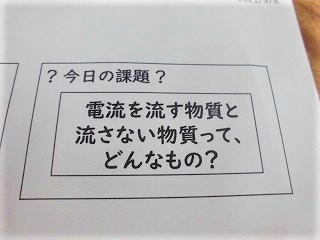 ？今日の課題？
電流を流す物質と
流さない物質って、
どんなもの？